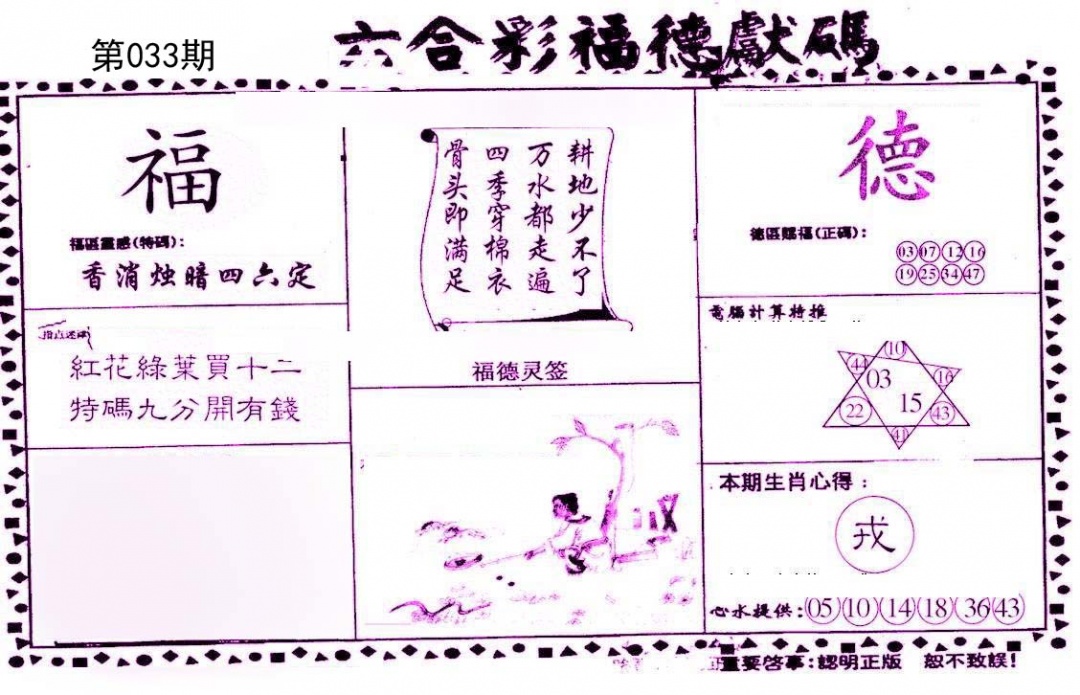 第033期
六合彩福德獻碼
福
福區靈感(特碼):
香消烛暗四六定
紅花綠葉買十二
特碼九分開有錢
耕地少不了
万水都走遍
四季穿棉衣
骨头即满足
福德灵签
德
德區賜福(正碼):
03 07 12 16
19 25 34 47
電腦計算特推
10
44 03 16
22 15 43
41
本期生肖心得:
戎
心水提供:05 10 14 18 36 43
重要啓事:認明正版 恕不致誤!